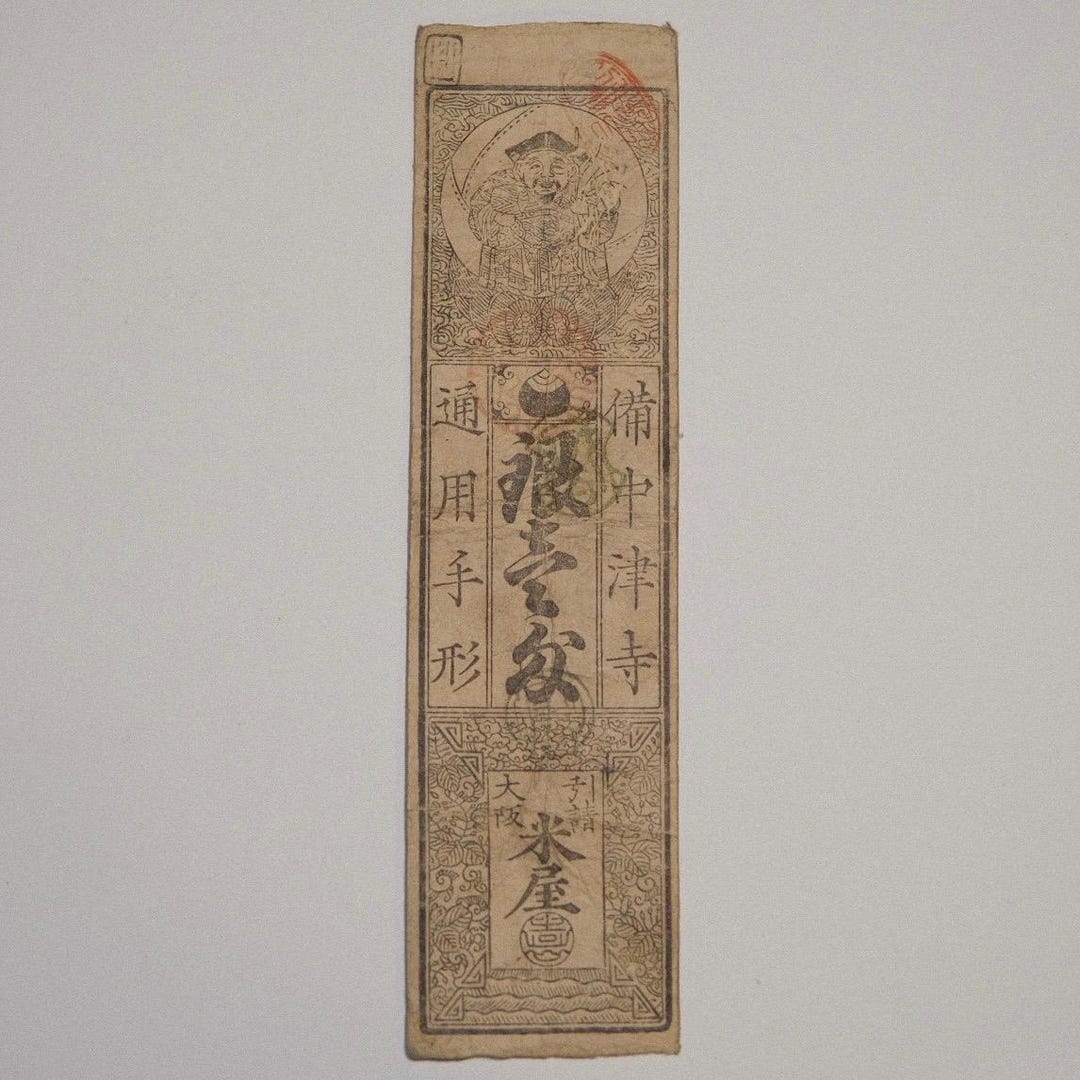 備中津寺
銀壱匁
通用手形
引請
大阪
米屋